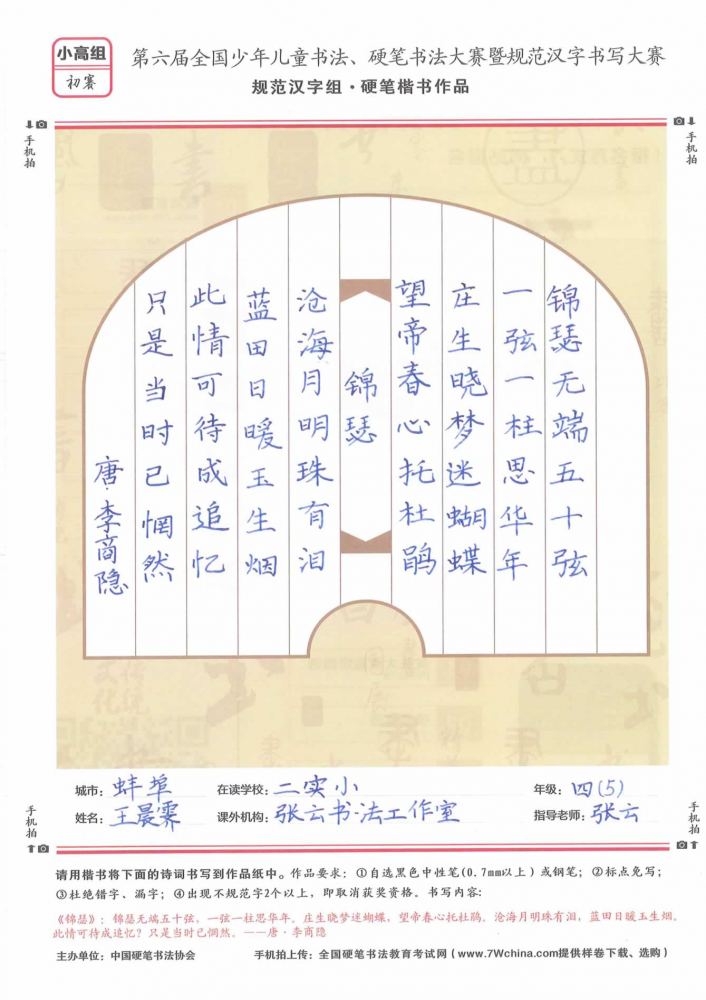 小高组
初赛
第六届全国少年儿童书法、硬笔书法大赛暨规范汉字书写大赛
规范汉字组·硬笔楷书作品
手机拍
手机拍
锦瑟无端五十弦
一弦一柱思华年
庄生晓梦迷蝴蝶
望帝春心托杜鹃
锦瑟
沧海月明珠有泪
蓝田日暖玉生烟
此情可待成追忆
只是当时已惘然
唐·李商隐
城市：蚌埠 在读学校：二实小 年级：四(5)
姓名：王晨霁 课外机构：张云书法工作室 指导老师：张云
手机拍
手机拍
请用楷书将下面的诗词书写到作品纸中。作品要求：①自选黑色中性笔(0.7mm以上）或钢笔；②标点免写；
③杜绝错字、漏字；④出现不规范字2个以上，即取消获奖资格。书写内容：
《锦瑟》：锦瑟无端五十弦，一弦一柱思华年。庄生晓梦迷蝴蝶，望帝春心托杜鹃。沧海月明珠有泪，蓝田日暖玉生烟。
此情可待成追忆？只是当时已惘然。——唐·李商隐
主办单位：中国硬笔书法协会 手机拍上传：全国硬笔书法教育考试网（www.7Wchina.com提供样卷下载、选购）